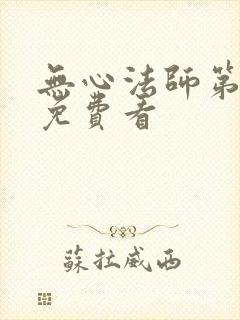 無心法師第
免費看
蘇拉威西